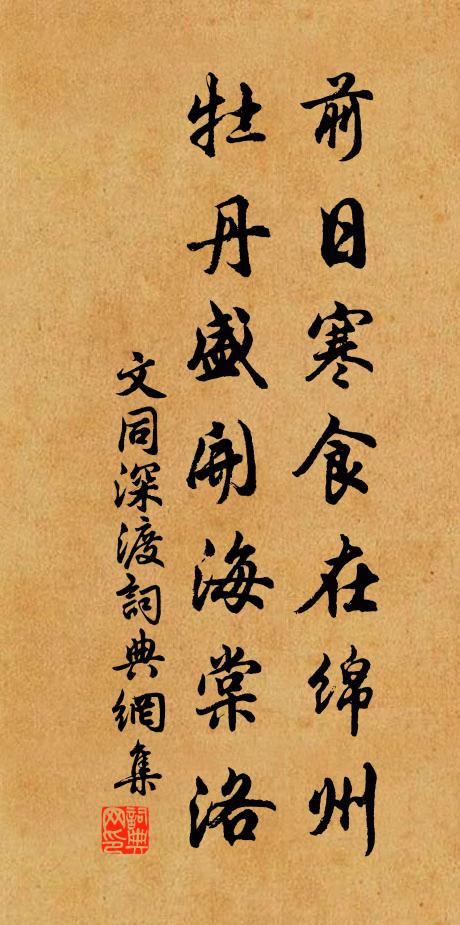 前日寒食在绵州
牡丹盛开海棠洛
文同深渡詞典網集
詞典网印